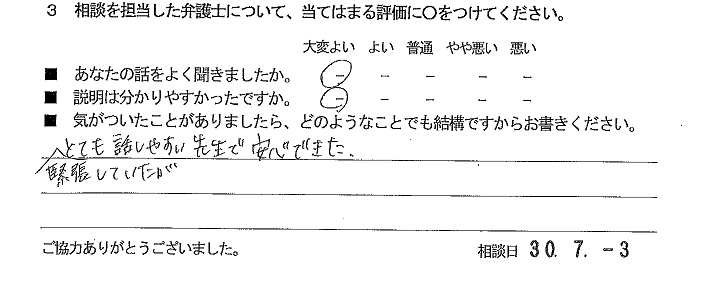 3 相談を担当した弁護士について、当てはまる評価に○をつけてください。
大変よい よい 普通 やや悪い 悪い
■ あなたの話をよく聞きましたか。 － － － － －
■ 説明は分かりやすかったですか。 － － － － －
■ 気がついたことがありましたら、どのようなことでも結構ですからお書きください。
とても話しやすい先生で安心できた。
緊張していたが
ご協力ありがとうございました。 相談日 30. 7. -3